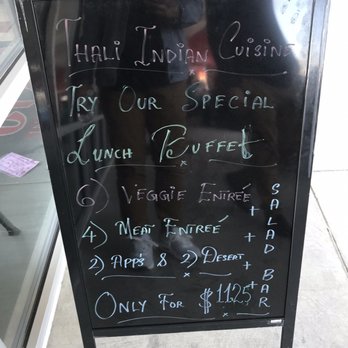 Thali Indian Cuisine
Try Our Special
Lunch Buffet
6) Veggie Entreé
4) Meat Entreé
2) App's & 2) Desert
+ Salad + Bar
Only For $11.25